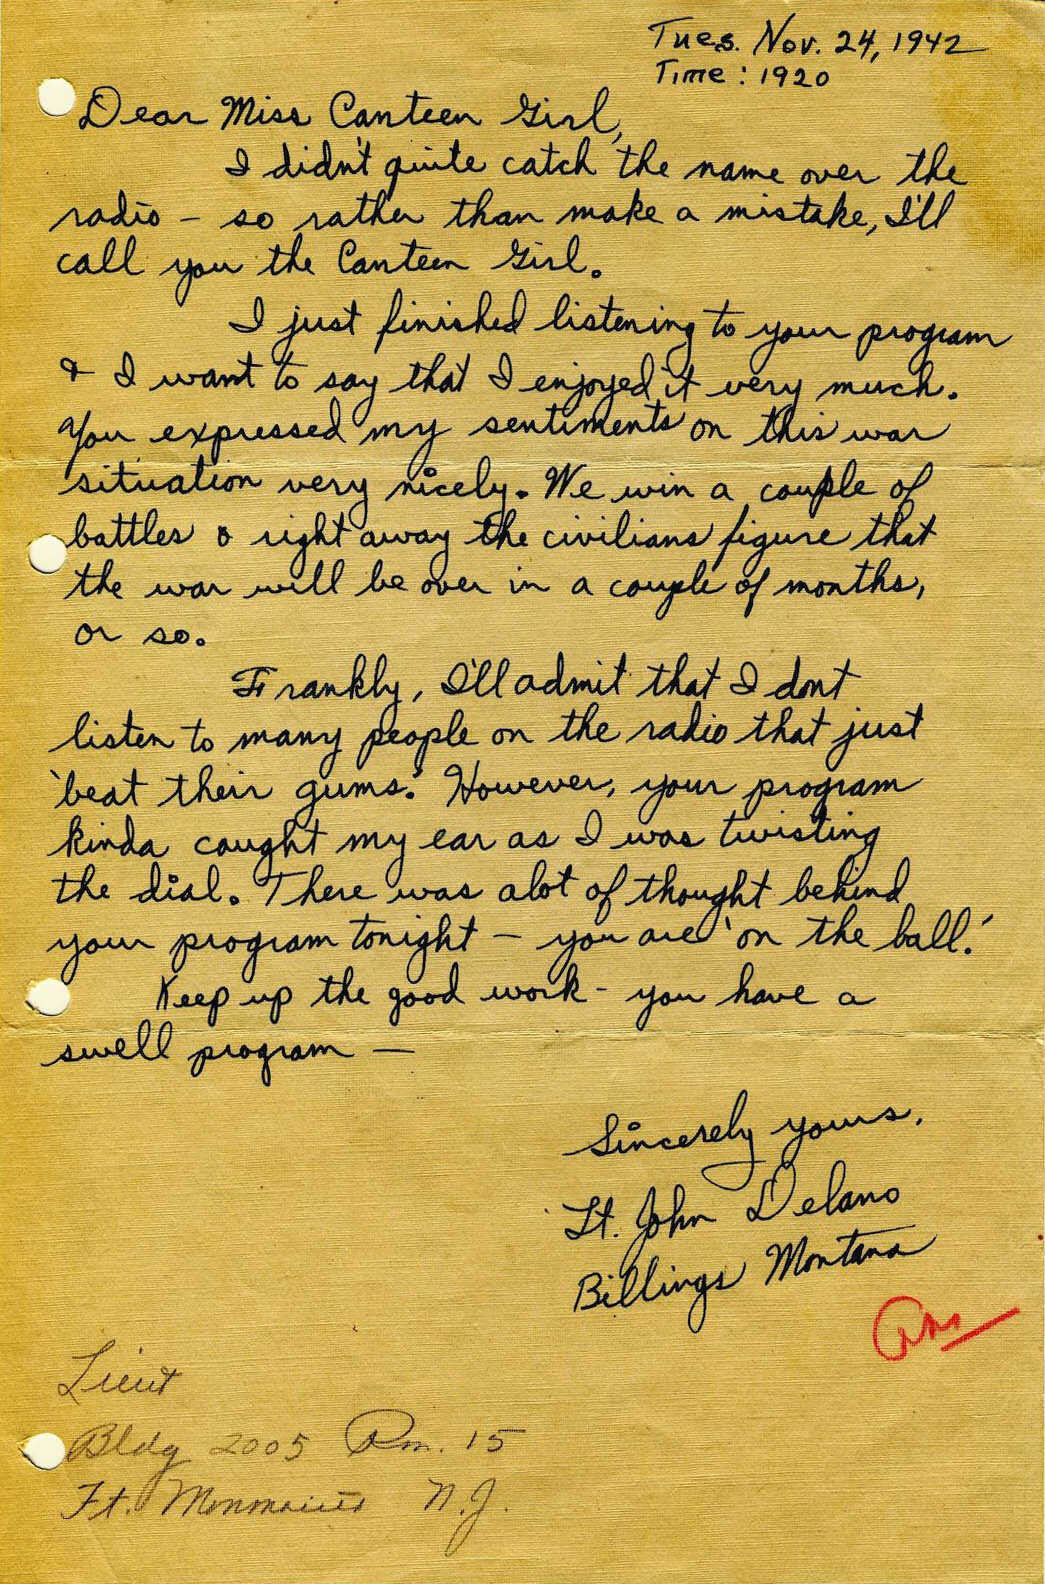 Tues. Nov. 24, 1942
Time: 1920
Dear Miss Canteen Girl,
I didn't quite catch the name over the
radio – so rather than make a mistake, I'll
call you the Canteen Girl.
I just finished listening to your program
& I want to say that I enjoyed it very much.
You expressed my sentiments on this war
situation very nicely. We win a couple of
battles & right away the civilians figure that
the war will be over in a couple of months,
or so.
Frankly, I'll admit that I dont
listen to many people on the radio that just
'beat their gums.' However, your program
kinda caught my ear as I was twisting
the dial. There was alot of thought behind
your program tonight – you are 'on the ball.'
Keep up the good work - you have a
swell program —
Sincerely yours,
Lt. John Delano
Billings Montana
Ans
Lieut
Bldg 2005 Rm. 15
Ft. Monmouth N.J.